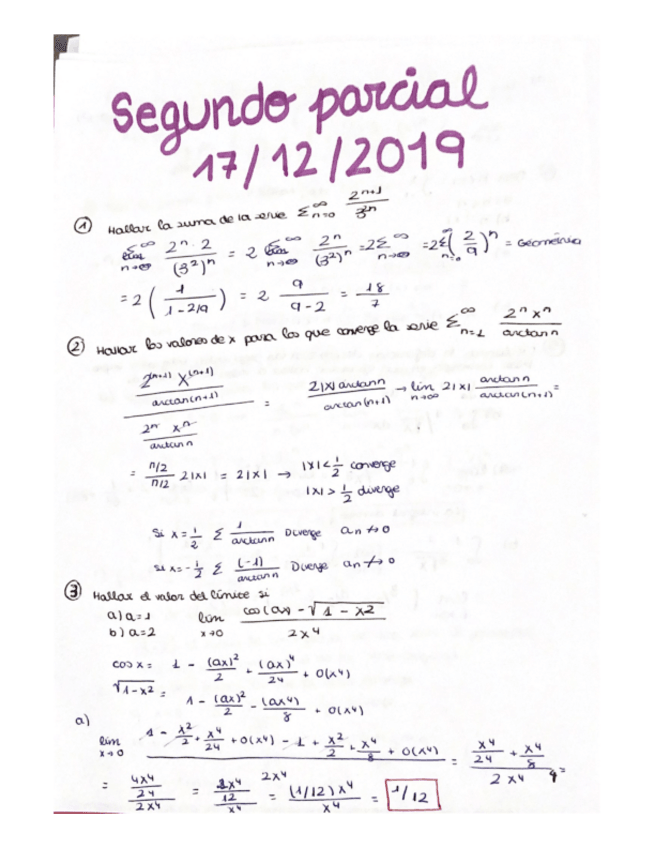 Segundo parcial
17/12/2019
① Hallar la suma de la serie Σ_{n=0}^∞ 2^{n+1}/3^{2n}
Σ_{n→∞}^∞ 2^n · 2/(3^2)^n = 2 Σ_{n→∞}^∞ 2^n/(3^2)^n = 2Σ_{n→∞}^∞ = 2Σ_{n=0}^∞ (2/9)^n = Geométrica
= 2 (1/(1-2/9)) = 2 9/(9-2) = 18/7
② Hallar los valores de x para los que converge la serie Σ_{n=1}^∞ 2^n x^n/arctan n
(2^{(n+1)} x^{(n+1)}/arctan(n+1))/(2^n x^n/arctan n) = 2|x| arctan n/arctan(n+1) → lim_{n→∞} 2|x| arctan n/arctan(n+1) =
= π/2/π/2 2|x| = 2|x| → |x| < 1/2 converge
|x| > 1/2 diverge
Si x = 1/2 Σ 1/arctan n Diverge an ↛ 0
Si x = -1/2 Σ (-1)/arctan n Diverge an ↛ 0
③ Hallar el valor del límite si
a) a=1 lim_{x→0} cos(ax) - √1 - x2/2x4
b) a=2
cos x = 1 - (ax)^2/2 + (ax)^4/24 + o(x4)
√1-x2 = 1 - (ax)^2/2 - (ax4)/8 + o(x4)
a)
lim_{x→0} 1 - x^2/2 + x^4/24 + o(x4) - 1 + x^2/2 + x^4/8 + o(x4)/2x4 = (x4/24 + x4/8)/2x4 =
= (4x4/24)/2x4 = (2x4/12)/x4 = (1/12)x4/x4 = 1/12